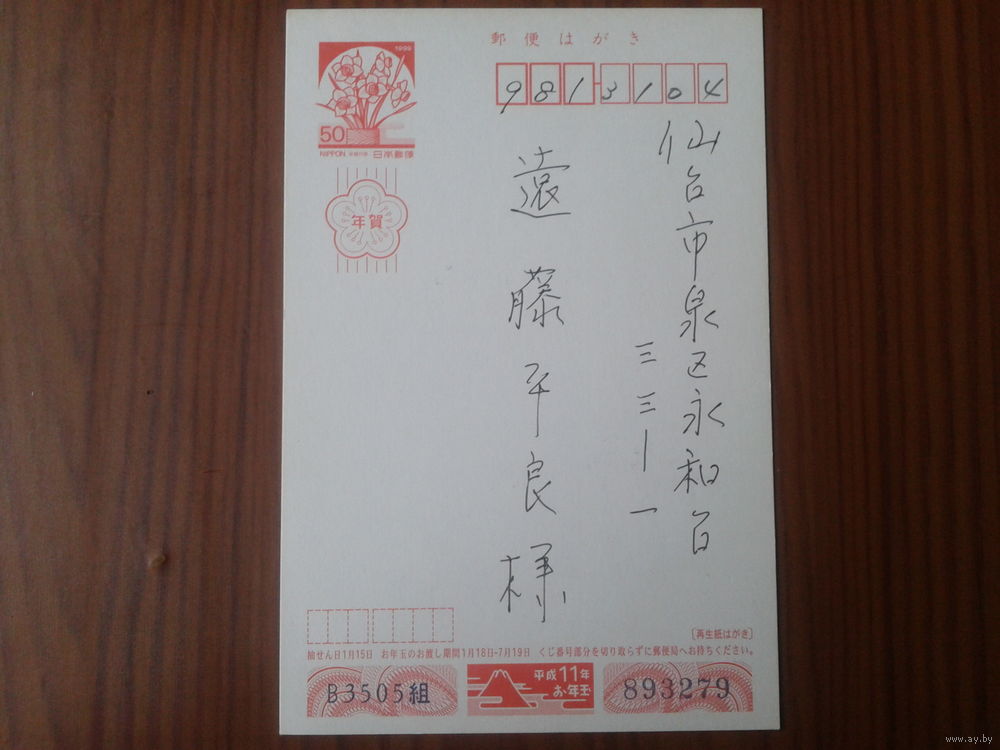 郵便はがき
1999
50
NIPPON 日本郵便
年賀
9813104
仙台市泉区永和台
三三ー一
遠藤平良様
〔再生紙はがき〕
抽せん日1月15日 お年玉のお渡し期間1月18日-7月19日 くじ番号部分を切り取らずに郵便局へお持ちください。
B3505組
平成11年
お年玉
893279
www.ay.by